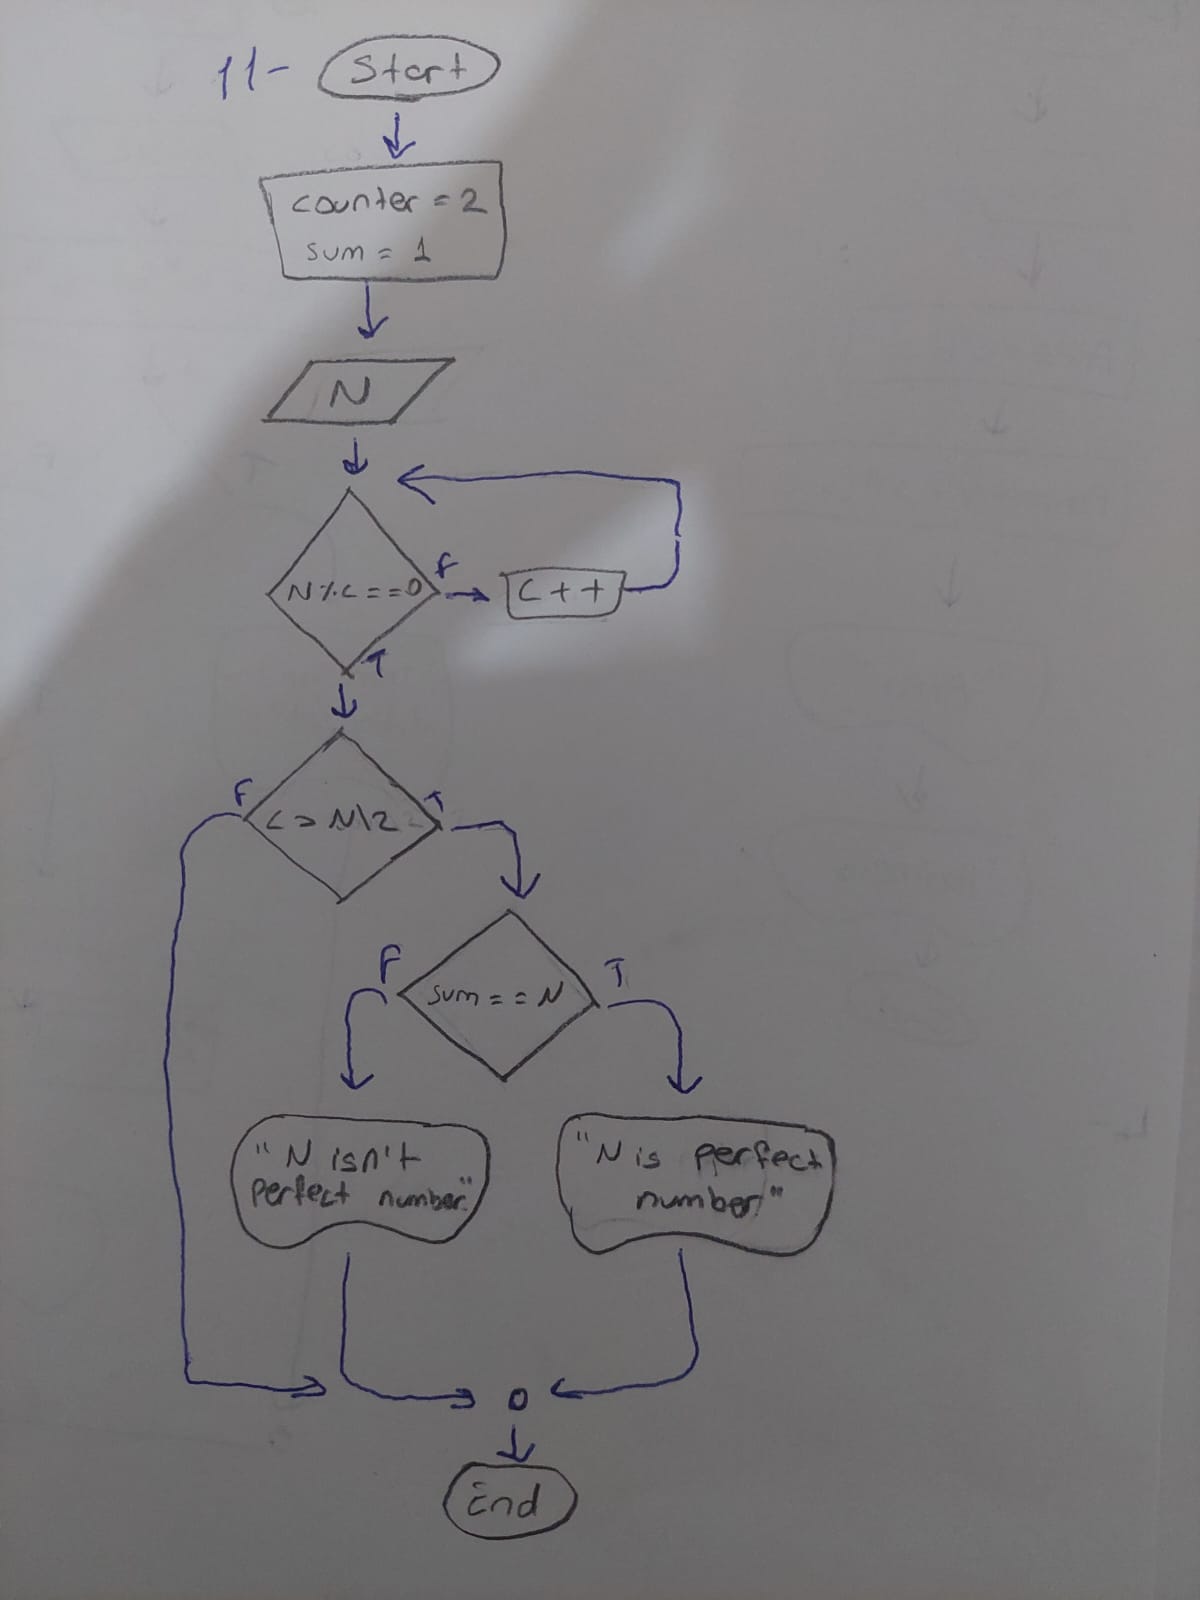 11- Start
counter = 2
sum = 1
N
N%C==0
F
C++
T
F
C > N\2
T
F
sum==N
T
"N isn't
perfect number"
"N is perfect
number"
End